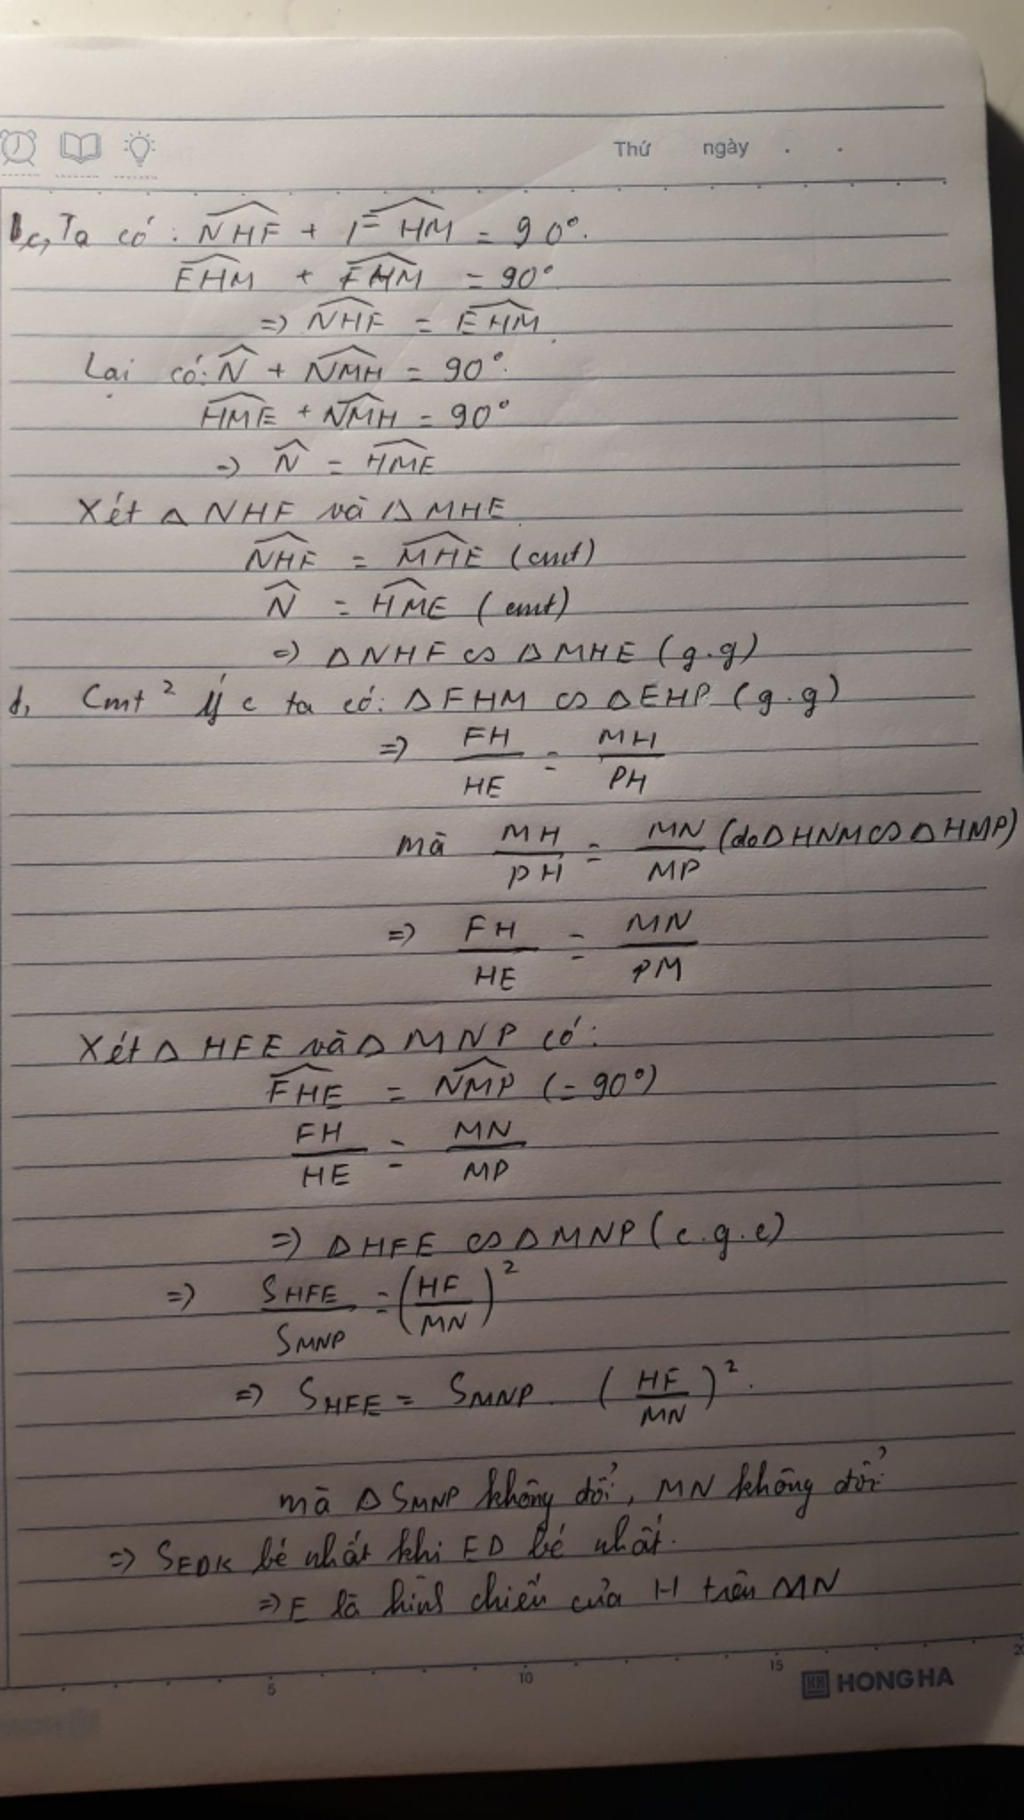 Thứ ngày . .
c, Ta có: NHF + FHM = 90°.
EHM + FHM = 90°
=> NHF = EHM
Lại có: N + NMH = 90°.
HME + NMH = 90°
=> N = HME
Xét Δ NHF và Δ MHE
NHF = MHE (cmt)
N = HME (cmt)
=> Δ NHF ∽ Δ MHE (g.g)
d, Cmt² ý c ta có: Δ FHM ∽ Δ EHP (g.g)
=> FH/HE = MH/PH
mà MH/PH = MN/MP (do Δ HNM ∽ Δ HMP)
=> FH/HE = MN/PM
Xét Δ HFE và Δ MNP có:
FHE = NMP (= 90°)
FH/HE = MN/MP
=> Δ HFE ∽ Δ MNP (c.g.c)
=> SHFE/SMNP = (HF/MN)²
=> SHFE = SMNP . (HF/MN)².
mà Δ SMNP không đổi, MN không đổi
=> SEDK bé nhất khi ED bé nhất.
=> F là hình chiếu của H trên MN
5 10 15 20
HONG HA